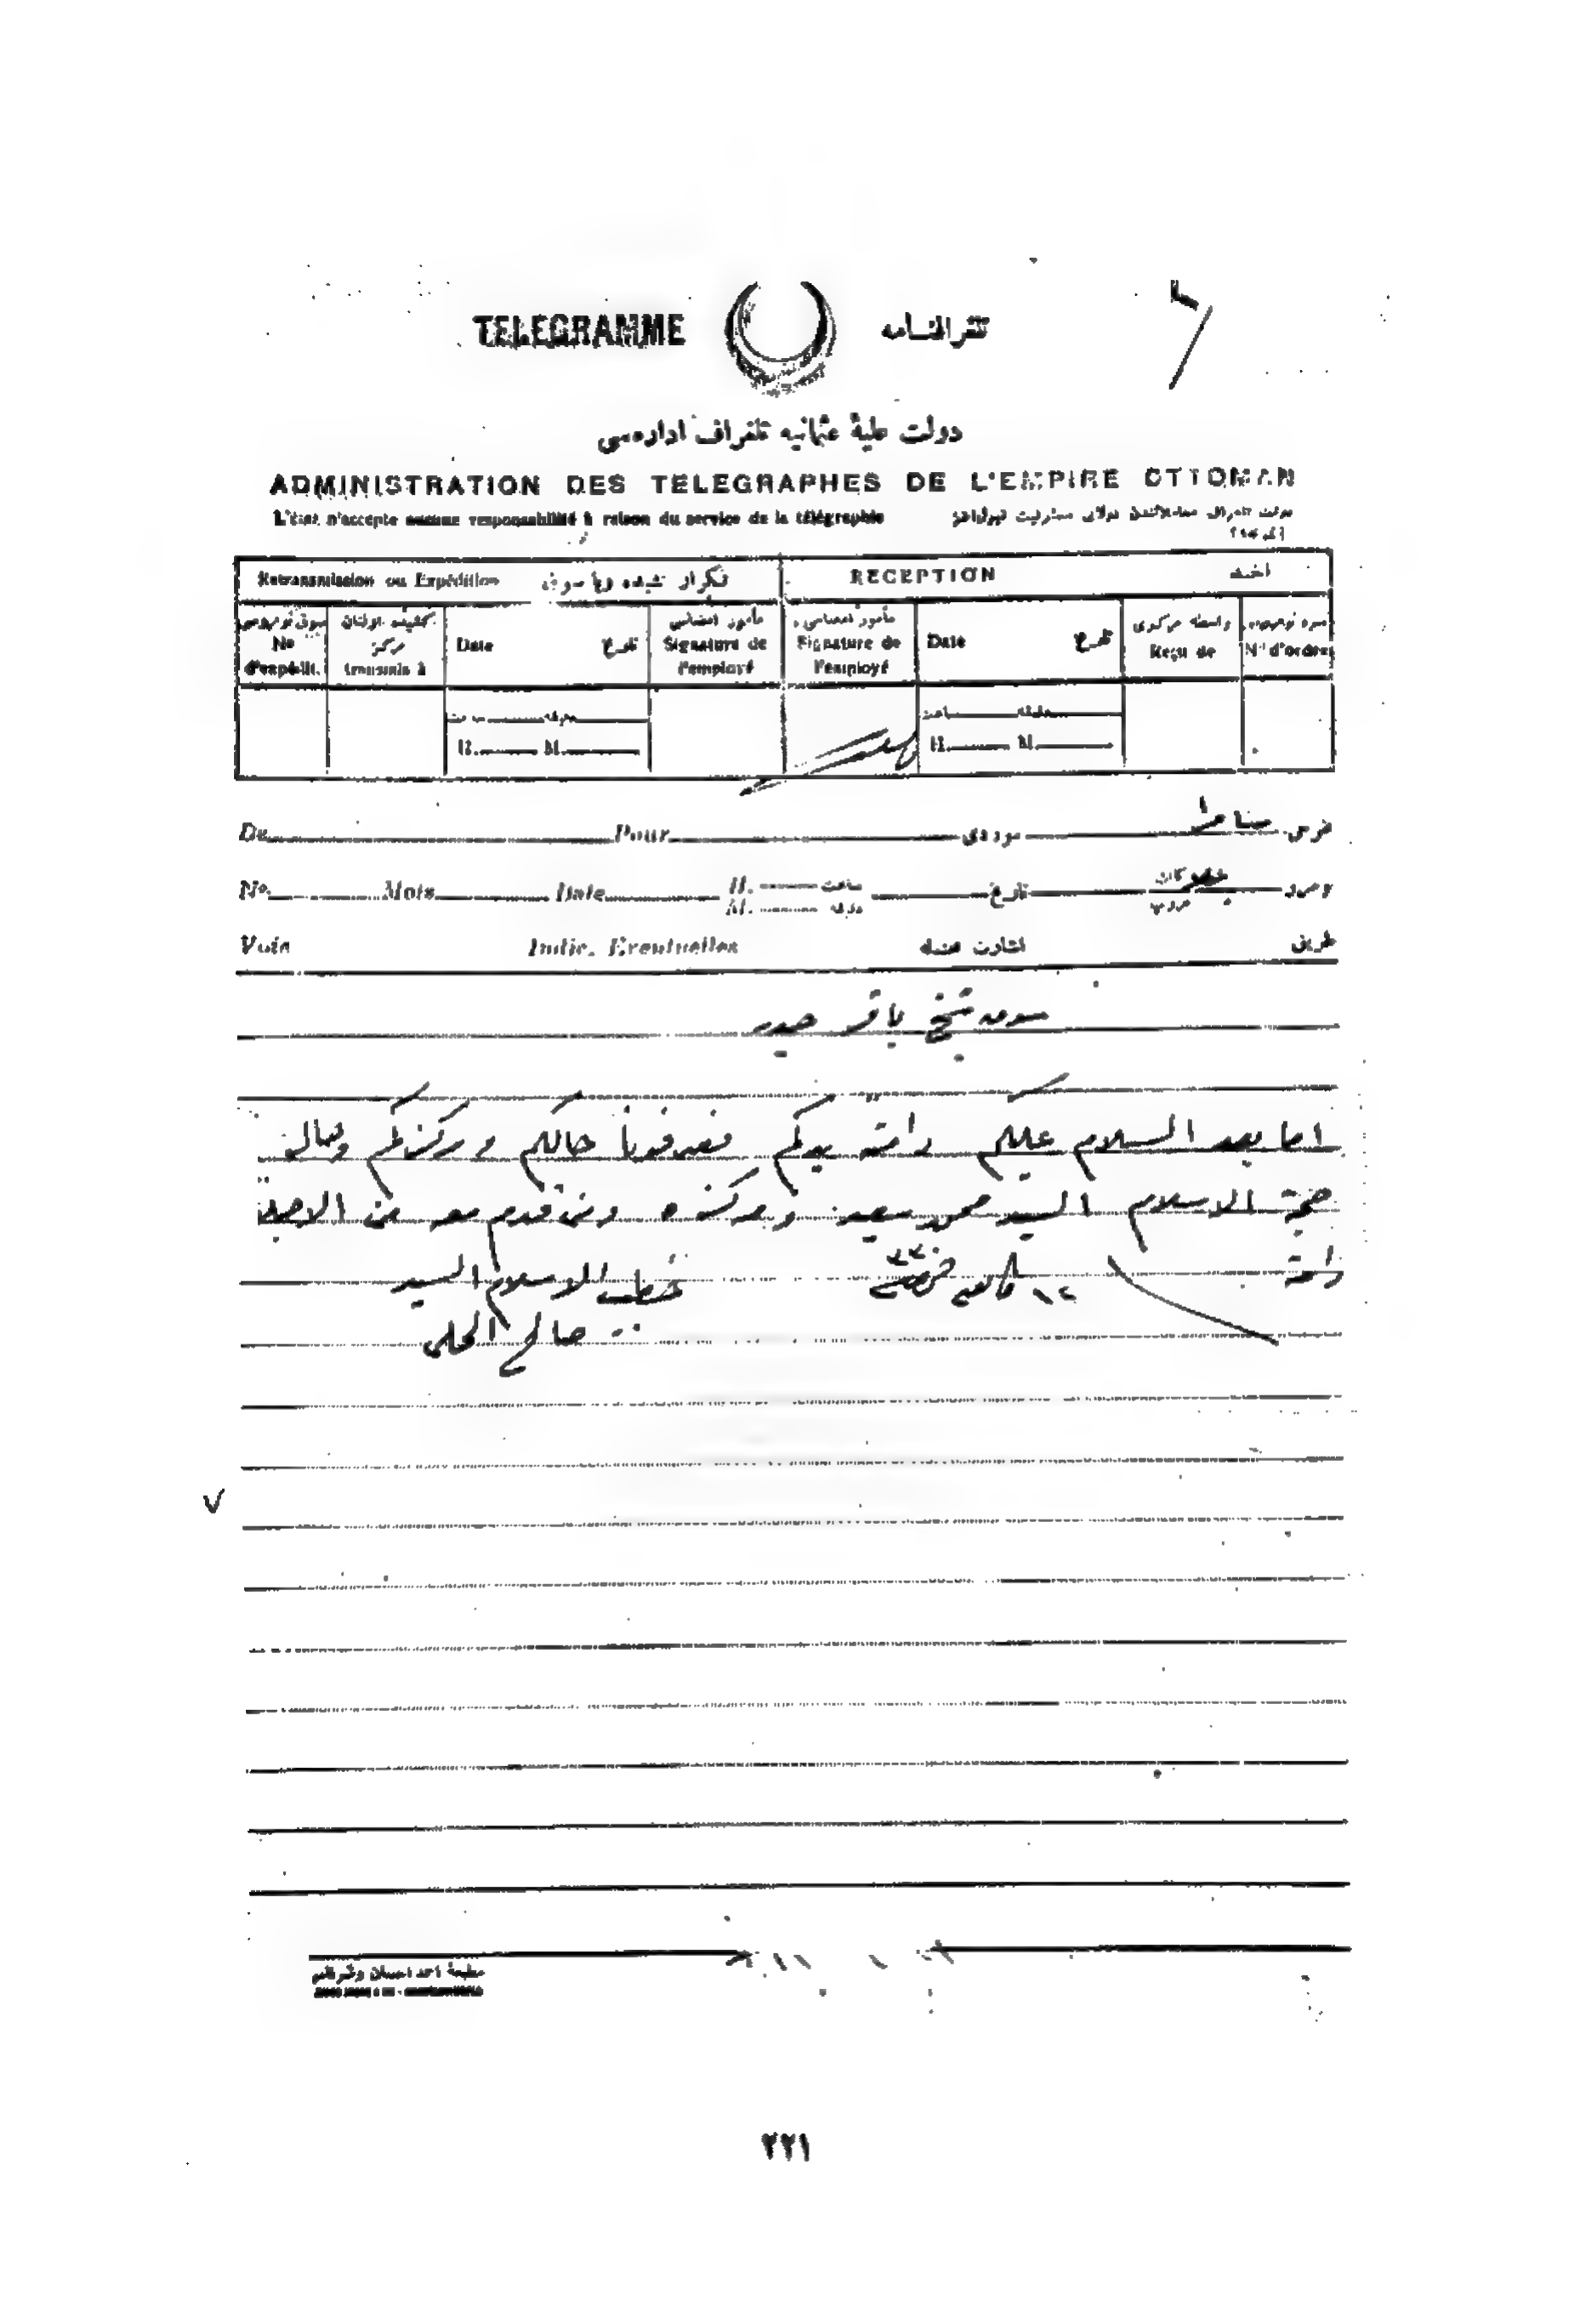 TELEGRAMME تلغرافنامه
دولت علیهٔ عثمانیه تلغراف اداره‌سی
ADMINISTRATION DES TELEGRAPHES DE L'EMPIRE OTTOMAN
L'état n'accepte aucune responsabilité à raison du service de la télégraphie
Retransmission ou Expédition تكرار كشیده ویا سوق RECEPTION اخذ
No d'expédit. transmis à مركز Date تاریخ مأمور امضاسی Signature de l'employé مأمور امضاسی Signature de l'employé Date تاریخ واسطه مركزی Reçu de No d'ordre
ساعت دقیقه ساعت دقیقه
H. M. H. M.
De Pour موردی سامرا مخرجی
No. Mots Date H. ساعت تاریخ
M. دقیقه غروب
Voie Indic. Eventuelles اشارت طریق
شيخ باقر حيدر
اما بعد السلام عليكم رامته يدكم فعرفونا حالكم ومركزكم وحال
حجة الاسلام السيد محمد سعيد ومركزه ومن قدم معه من
١٢ كانون خطيب الاسلام السيد
صالح الحلي
مطبعهٔ احمد احسان وشركاسی
٢٢١